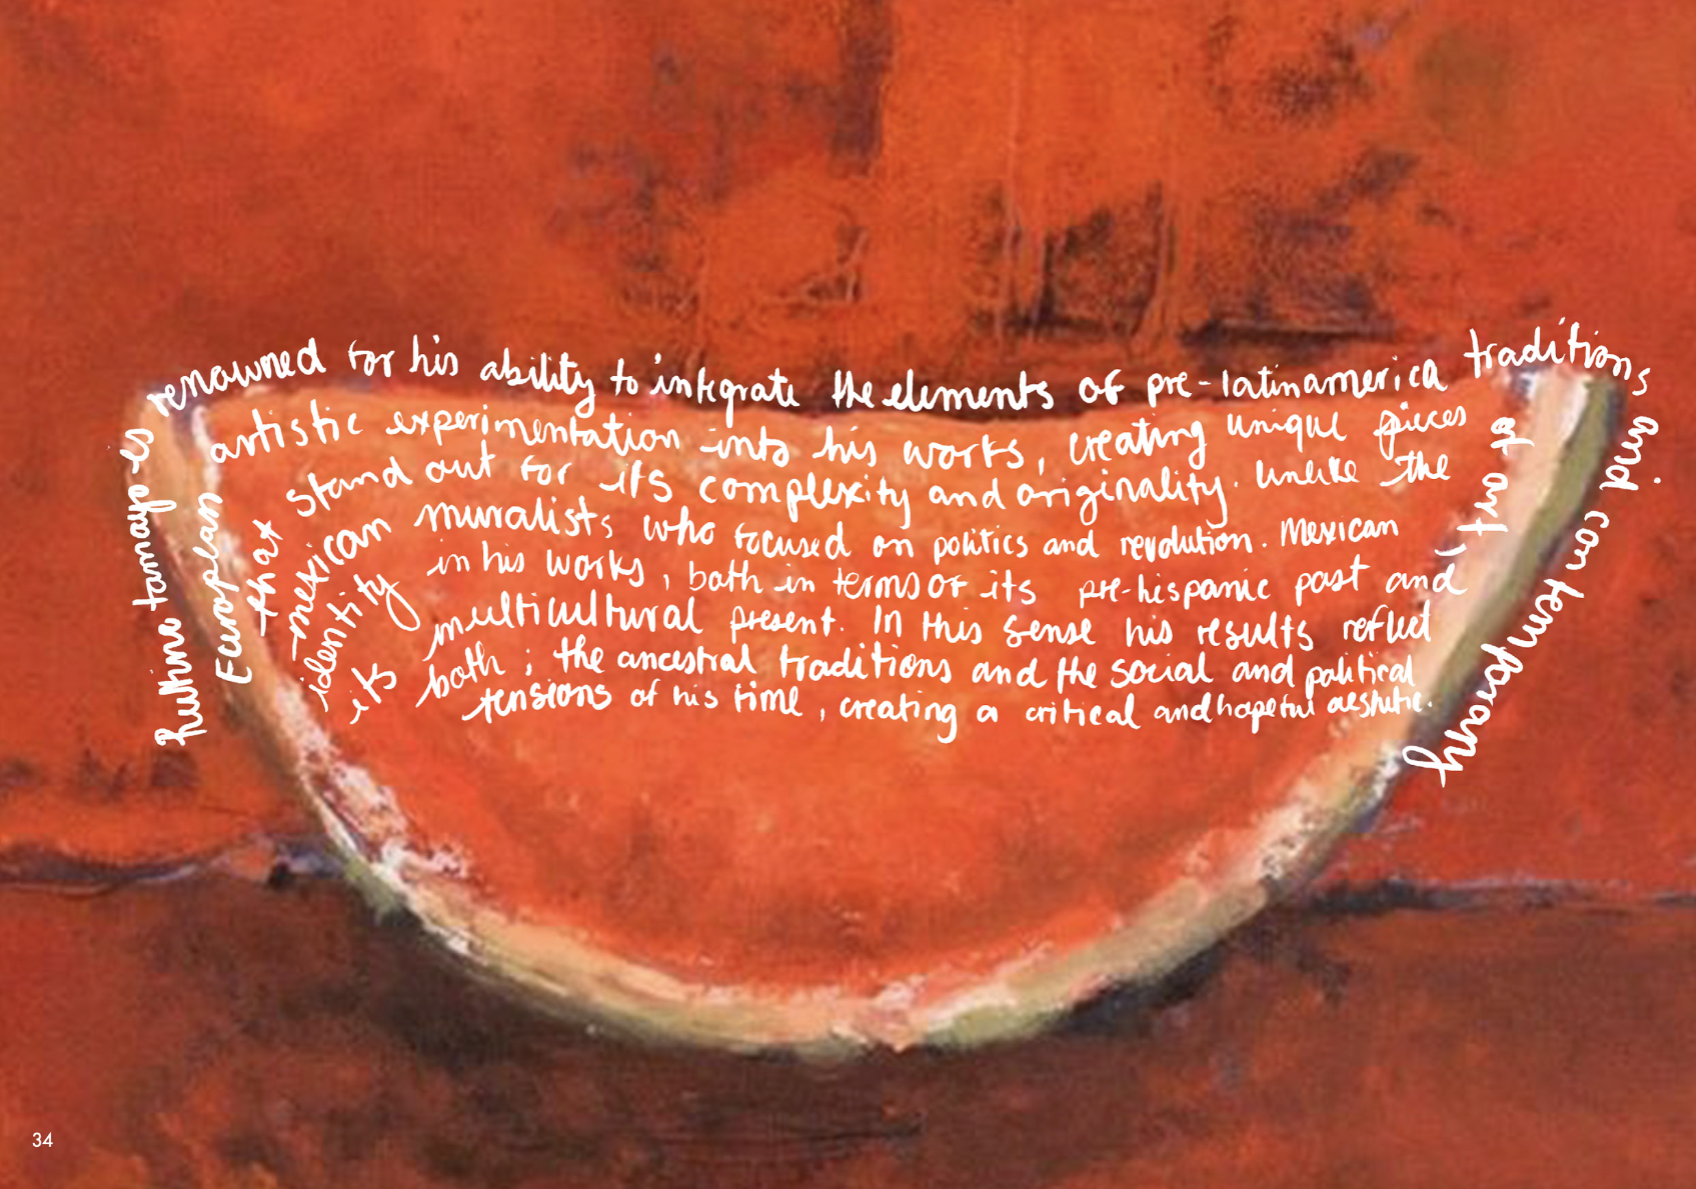 hufino tamayo is renowned for his ability to integrate the elements of pre-latinamerica traditions and contemporany
European artistic experimentation into his works, creating unique pieces of art,
that stand out for its complexity and originality. unlike the
mexican muralists who focused on politics and revolution. Mexican
identity in his works, both in terms of its pre-hispanic past and
its multicultural present. In this sense his results reflect
both; the ancestral traditions and the social and political
tensions of his time, creating a critical and hopeful aesthetic.
34